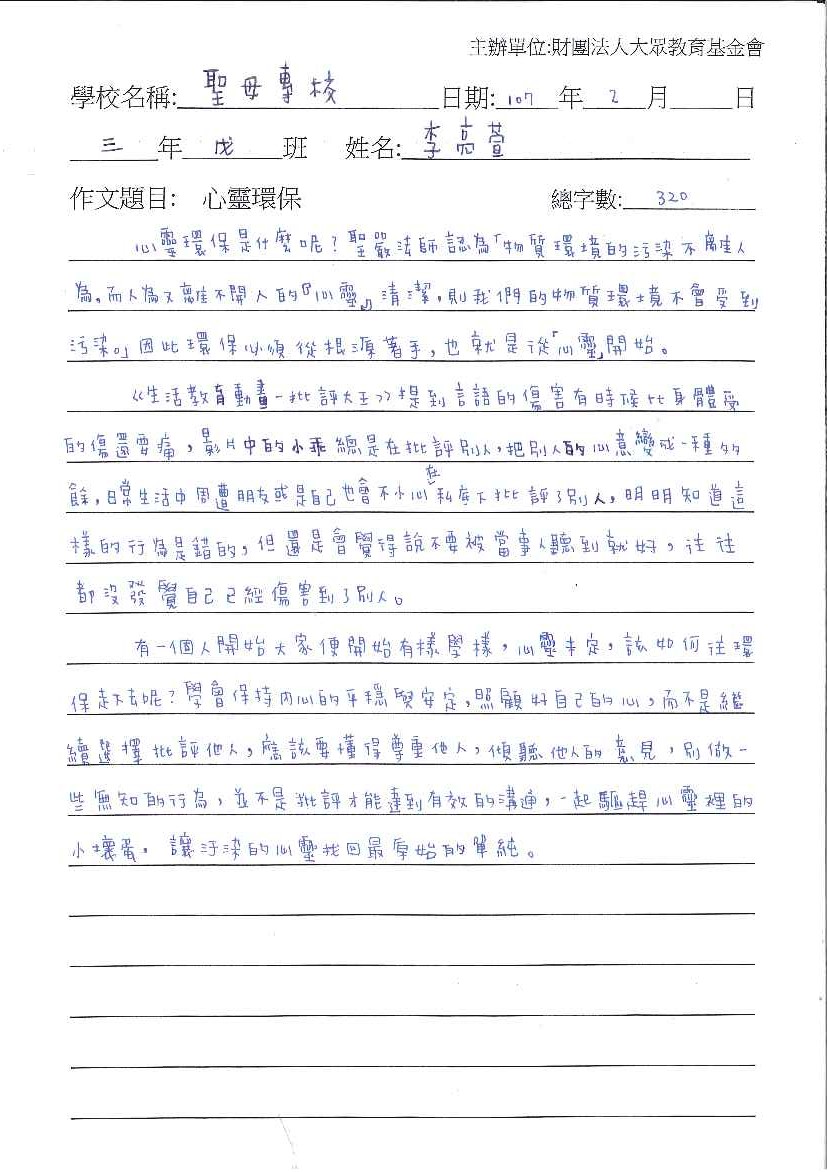 主辦單位:財團法人大眾教育基金會
學校名稱: 聖母專校 日期: 107 年 2 月 日
三 年 戊 班 姓名: 李亮萱
作文題目: 心靈環保 總字數: 320
心靈環保是什麼呢?聖嚴法師認為「物質環境的污染不離人
為,而人為又離不開人的『心靈』清潔,則我們的物質環境不會受到
污染。」因此環保必須從根源著手,也就是從「心靈」開始。
《生活教育動畫-批評大王》提到言語的傷害有時候比身體受
的傷還要痛,影片中的小乖總是在批評別人,把別人的心意變成一種多
餘,日常生活中周遭朋友或是自己也會不小心在私底下批評了別人,明明知道這
樣的行為是錯的,但還是會覺得說不要被當事人聽到就好,往往
都沒發覺自己已經傷害到了別人。
有一個人開始大家便開始有樣學樣,心靈未定,該如何往環
保走下去呢?學會保持內心的平穩與安定,照顧好自己的心,而不是繼
續選擇批評他人,應該要懂得尊重他人,傾聽他人的意見,別做一
些無知的行為,並不是批評才能達到有效的溝通,一起驅趕心靈裡的
小壞蛋,讓汙染的心靈找回最原始的單純。